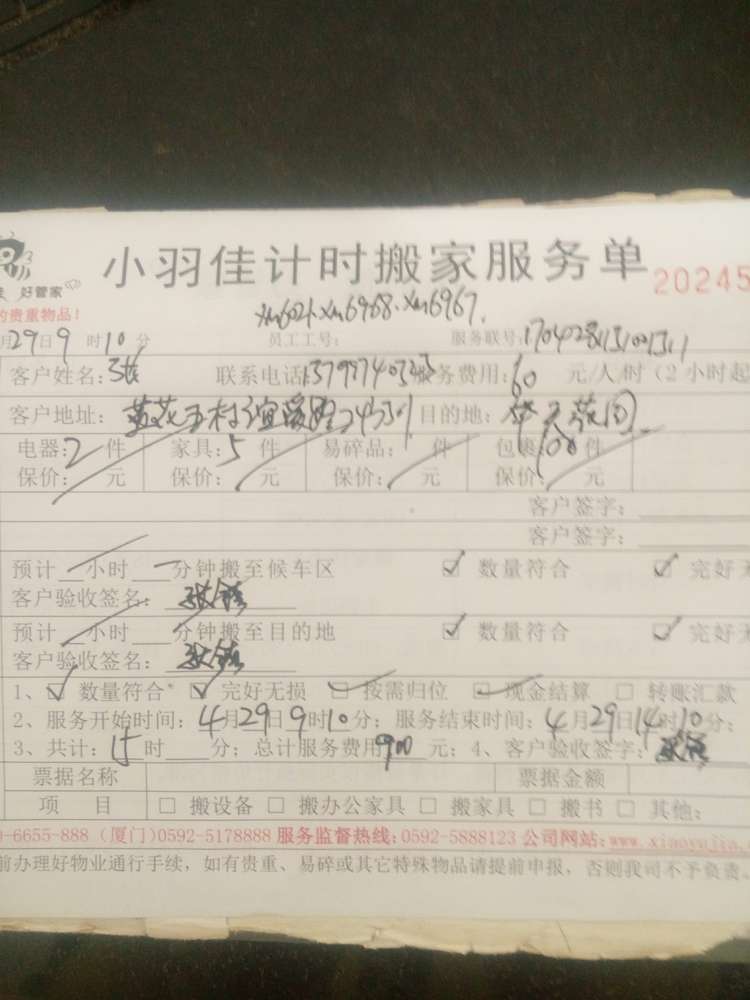 小羽佳计时搬家服务单 20245
好管家
的贵重物品!
xm6021.xm6968.xm6967.
月29日9时10分 员工工号: 服务联号:
客户姓名:张 联系电话: 服务费用:60元/人/时(2小时起
客户地址: 目的地:
电器:2件 家具:5件 易碎品: 件 包裹:100件
保价: 元 保价: 元 保价: 元 保价: 元
客户签字:
客户签字:
预计 小时 分钟搬至候车区 ☑ 数量符合 ☑ 完好无
客户验收签名:
预计 小时 分钟搬至目的地 ☑ 数量符合 ☑ 完好无
客户验收签名:
1、☑ 数量符合 ☑ 完好无损 ☑ 按需归位 ☑ 现金结算 □ 转账汇款
2、服务开始时间:4月29日9时10分;服务结束时间:4月29日14时10分;
3、共计:15时 分;总计服务费用900元;4、客户验收签字:
票据名称 票据金额
项 目 □ 搬设备 □ 搬办公家具 □ 搬家具 □ 搬书 □ 其他:
-6655-888(厦门)0592-5178888 服务监督热线:0592-5888123 公司网站:www.xiaoyujia.
前办理好物业通行手续,如有贵重、易碎或其它特殊物品请提前申报,否则我司不予负责。